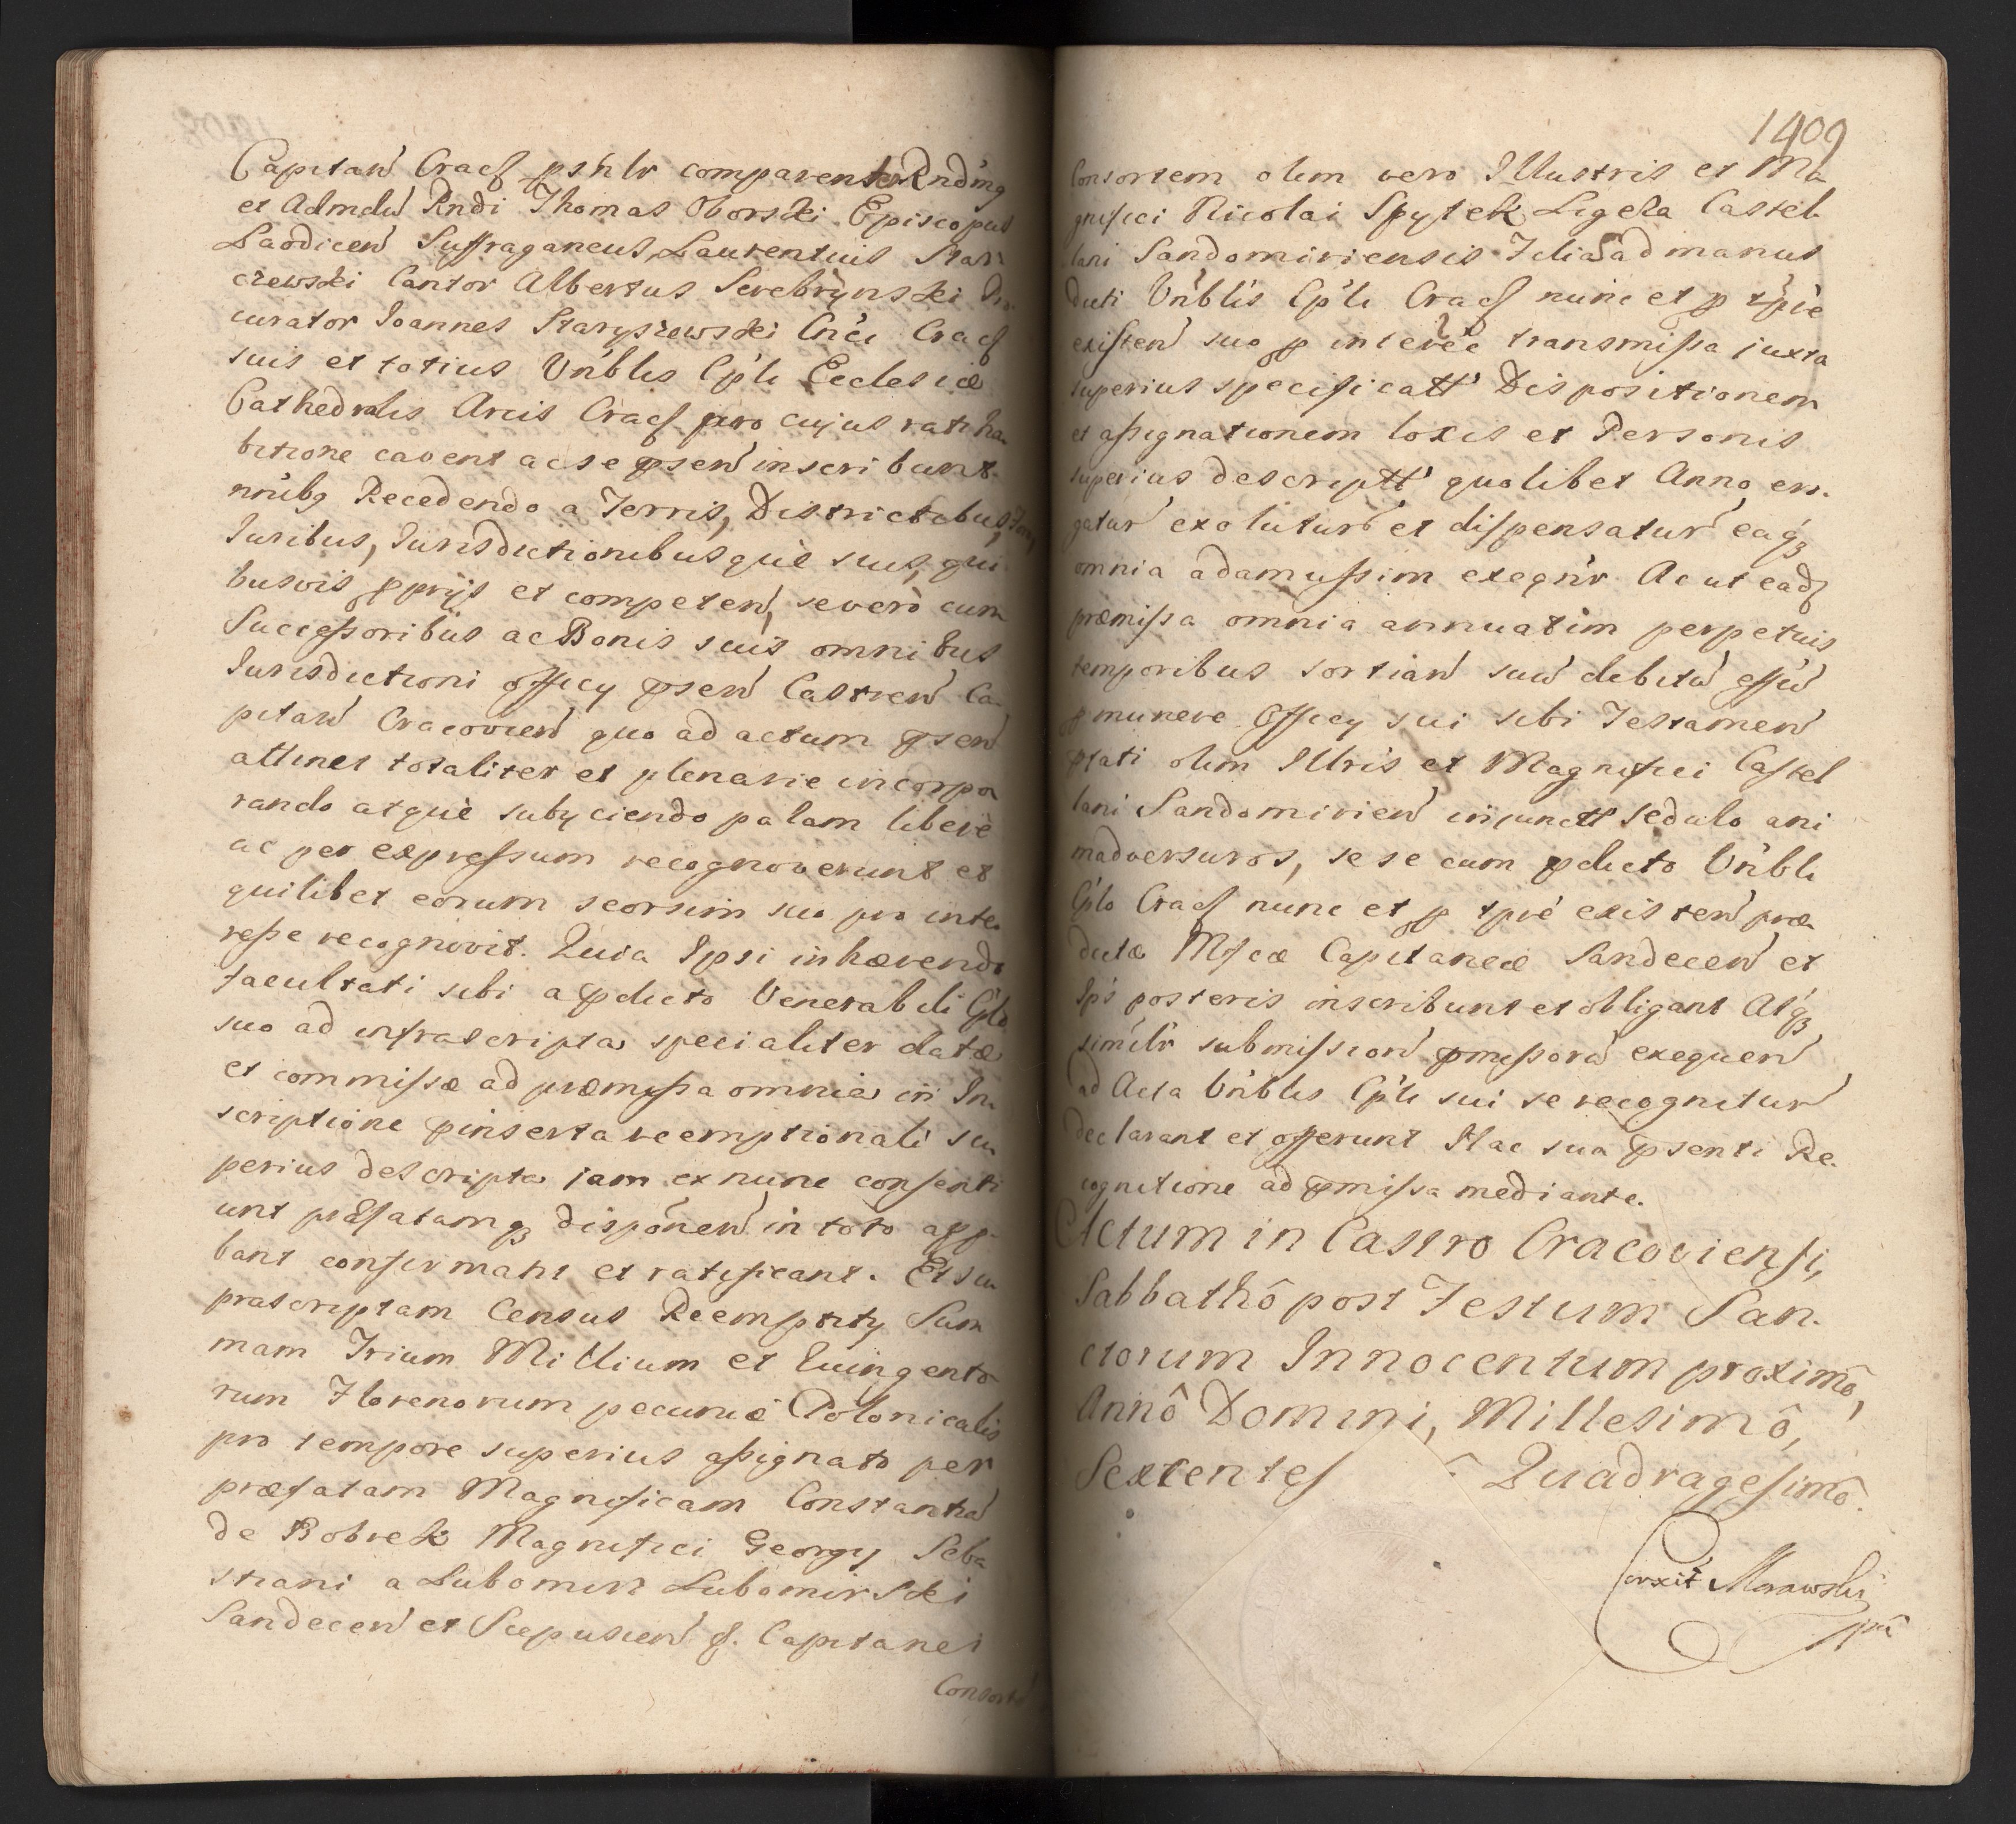 Capitan̄ Cracſ pshlr comparentes Rndīng
et Admdū Rndi Thomas Oborski Episcopus
Laodicen̄ Suffraganeus, Laurentius Star
czewski Cantor Albertus Serebrÿnski Pro
curator Ioannes Starÿszewski Cn̄ci Cracſ
suis et totius Vn̄blis Cpl̄i Ecclesiæ
Cathedralis Arcis Cracſ pro cujus ratiha
bitione cavent ac se p̄sen̄ inscribunt.
nn̄ibꝫ Recedendo a Terris, Districtibus,
Iuribus, Iurisdictionibusquè suis, qui
busvis ꝓprijs et competen̄, severò cum
Successoribus ac Bonis suis omnibus
Iurisdictioni officÿ p̄sen̄ Castren̄ Ca
pitan̄ Cracovien̄ quo ad actum p̄sen̄
attinet totaliter et plenarie incorpo
rando atquè subÿciendo palam liberè
ac per expressum recognoverunt et
quilibet eorum seorsim suo pro inte
resse recognovit. Quia Ipsi inhærendo
facultati sibi a p̄dicto Venerabili Cpl̄o
suo ad infrascripta specialiter datæ
et commissæ ad præmissa omnia in In
scriptione p̄inserta reemptionali su
perius descripta jam ex nunc consenti
unt præfatamqꝫ disponen̄ in toto app
bant confirmant et ratificant. Et su
prascriptam Census Reemptity Sum
mam Trium Millium et Quingento
rum Florenorum pecuniæ Polonicalis
pro tempore superius assignato per
præfatam Magnificam Constantiā
de Bobrek Magnifici Georgÿ Seba
stiani a Lubomirz Lubomirski
Sandecen̄ et Scepusien̄ &. Capitanei
Consorte
1409
Consortem olim vero Illustris et Ma
gnifici Nicolai Spytek Ligęza Castel
lani Sandomiriensis Filia ad manus
dicti Vn̄blis Cpl̄i Cracſ nunc et ꝓ tp̄re
existen̄ suo ꝓ interēē transmissa juxta
superius specificatt̄ Dispositionem
et assignationem locis et Personis
superius descriptt̄ quolibet Anno ero
gatur̄ exolutur̄ et dispensatur̄ eaqꝫ
omnia adamussim exeqn̄r Ac ut eadſ
præmissa omnia annuatim perpetuis
temporibus sortian̄ suū debitū effū
ꝓ munere Officÿ sui sibi Testamen̄
p̄fati olim Illris et Magnifici Castel
lani Sandomirien̄ injunctt̄ sedulo ani
madversuros, sese cum p̄dicto Vn̄bli
Cpl̄o Cracſ nunc et ꝓ tp̄re existen̄ præ
dictæ Mfcæ Capitaneæ Sandecen̄ et
Ip̄s posteris inscribunt et obligant Atqꝫ
similr submission̄ p̄missorū exequen̄
ad Acta Vn̄blis Cpl̄i sui se recognitur̄
declarant et offerunt Hac sua p̄senti Re
cognitione ad p̄missa mediante.
Actum in Castro Cracoviensi,
Sabbathô post Festum San
ctorum Innocentium proximô,
Annô Domini, Millesimô,
Sexcentes ô Quadragesimô.
Corxit Morawski
mpā